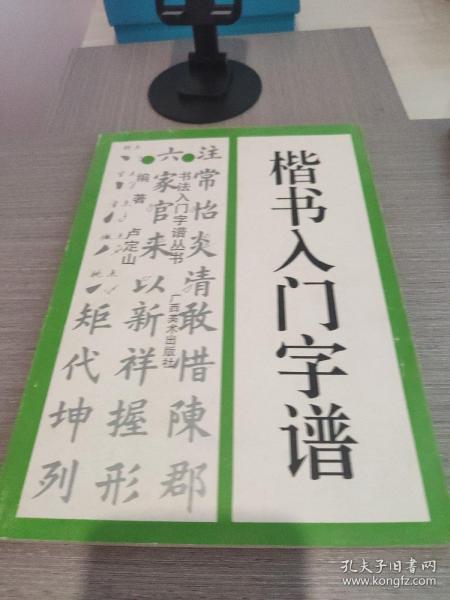 楷书入门字谱
书法入门字谱丛书
广西美术出版社
编著
卢定山
注常怡炎清敢惜陳郡
六家官来以新祥握形
矩代坤列
孔夫子旧书网
www.kongfz.com